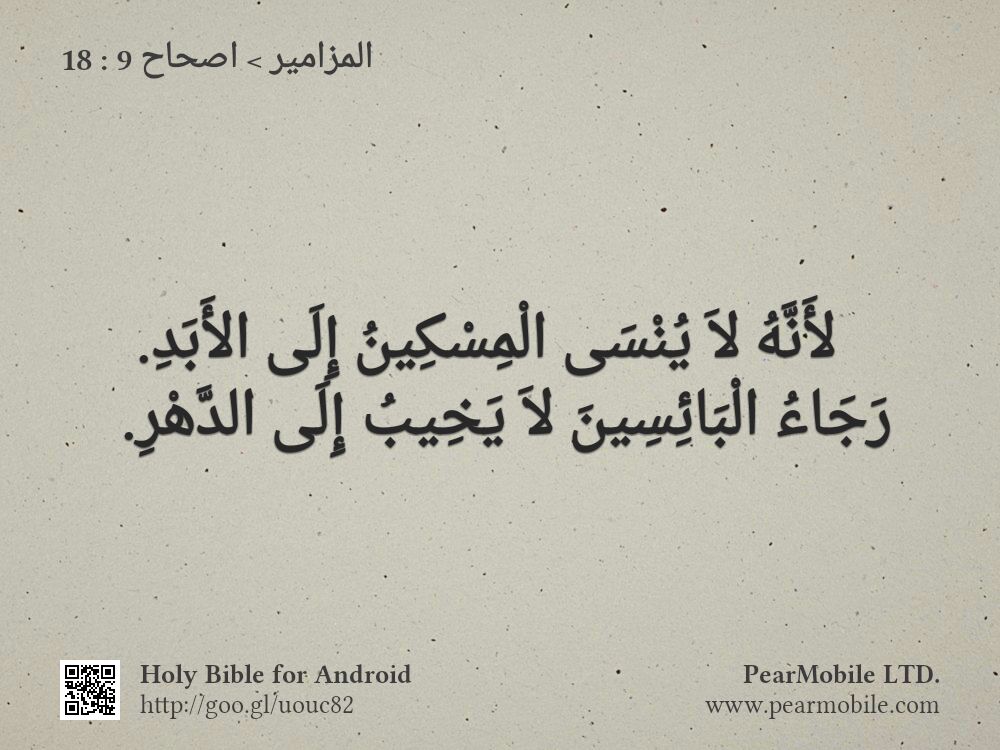 المزامير > اصحاح 9 : 18
لأَنَّهُ لاَ يُنْسَى الْمِسْكِينُ إِلَى الأَبَدِ.
رَجَاءُ الْبَائِسِينَ لاَ يَخِيبُ إِلَى الدَّهْرِ.
Holy Bible for Android
http://goo.gl/uouc82
PearMobile LTD.
www.pearmobile.com